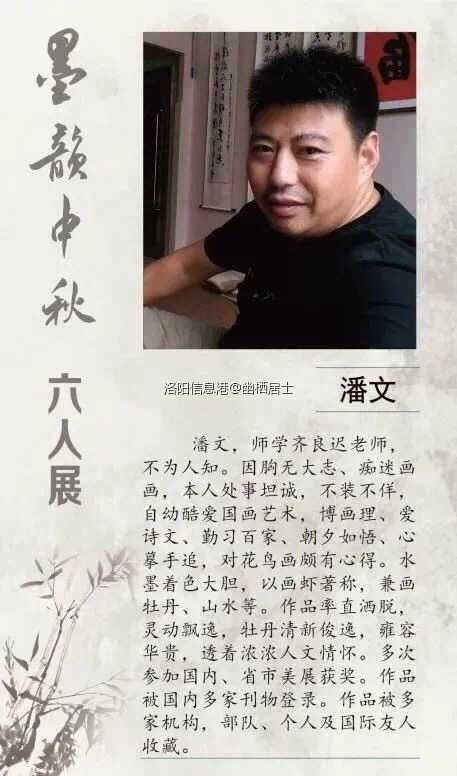 墨韻中秋
六人展
洛阳信息港@幽栖居士
潘文
潘文，师学齐良迟老师，
不为人知。因胸无大志、痴迷画
画，本人处事坦诚，不装不佯，
自幼酷爱国画艺术，博画理、爱
诗文、勤习百家、朝夕如悟、心
摹手追，对花鸟画颇有心得。水
墨着色大胆，以画虾著称，兼画
牡丹、山水等。作品率直洒脱，
灵动飘逸，牡丹清新俊逸，雍容
华贵，透着浓浓人文情怀。多次
参加国内、省市美展获奖。作品
被国内多家刊物登录。作品被多
家机构，部队、个人及国际友人
收藏。